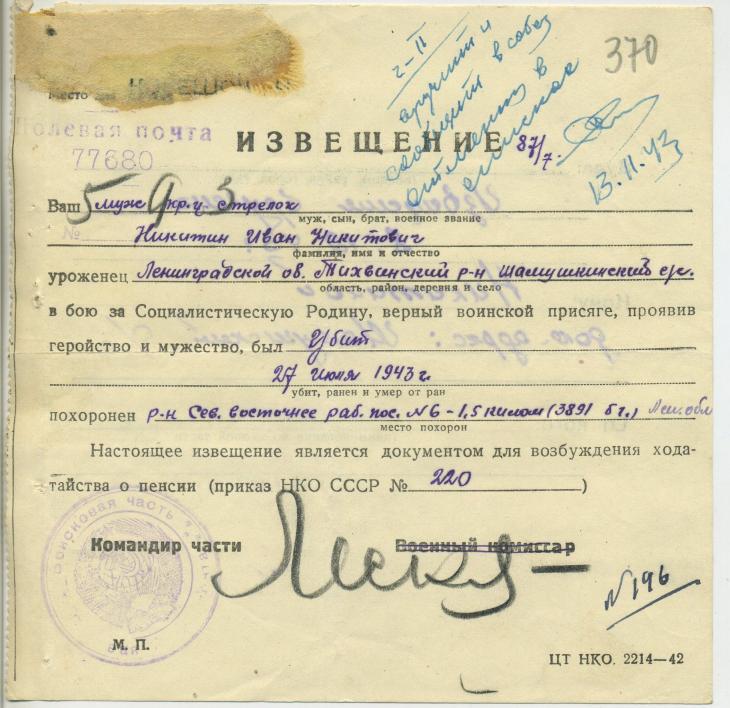 370
13.11.43
Место
Полевая почта
77680
ИЗВЕЩЕНИЕ 87/7
593
Ваш муж кр-ц стрелок
муж, сын, брат, военное звание
№ Никитин Иван Никитович
фамилия, имя и отчество
уроженец Ленинградской об. Тихвинский р-н
область, район, деревня и село
в бою за Социалистическую Родину, верный воинской присяге, проявив
геройство и мужество, был Убит
27 Июля 1943 г.
убит, ранен и умер от ран
похоронен р-н Сев. восточнее раб. пос. №6 - 1,5 килом (3891 бг.) Лен. обл
место похорон
Настоящее извещение является документом для возбуждения хода-
тайства о пенсии (приказ НКО СССР № 220 )
Командир части Военный комиссар
№ 196
М. П.
ЦТ НКО. 2214—42